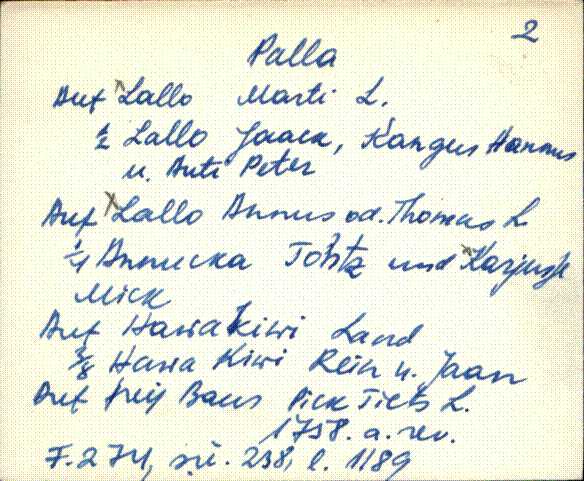 2
Palla
Auf Lallo Marti L.
½ Lallo Jaack, Kangus Hannus
u. Anti Peter
Auf Lallo Annus od. Thomas L.
¼ Annucka Tönz und Karjusze
Mick
Auf Hawakiwi Land
⅜ Hawa Kiwi Rein u. Jaan
Auf Baus Pick Tiets L.
1758. a. rev.
F. 274, sü. 238, l. 1189